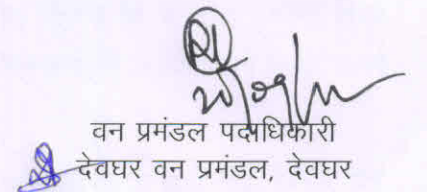 वन प्रमंडल पदाधिकारी
देवघर वन प्रमंडल, देवघर